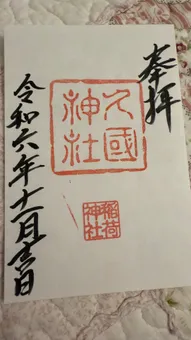 奉拝
久國
神社
稲荷
神社
令和六年十一月吉日